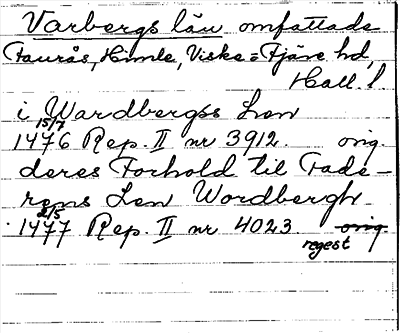 Varbergs län omfattade
Faurås, Himle, Viske o Fjäre hd,
Hall. l.
i Wardbergss Len
15/7
1476 Rep. II nr 3912. orig.
deres Forhold til Fade-
rens Len Wordbergh
2/5
1477 Rep. II nr 4023. orig.
regest